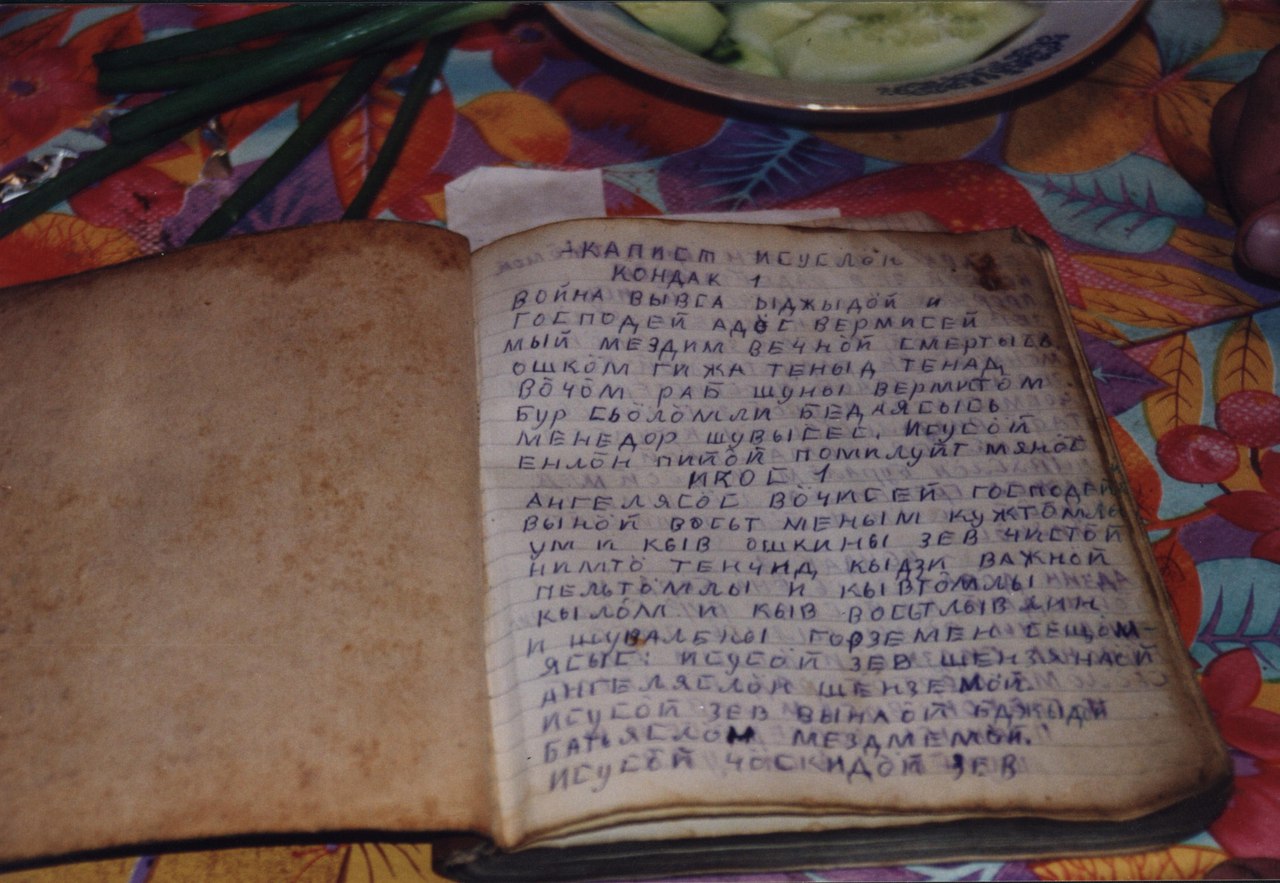 АКАПИСТ ИСУСЛӦН
КОНДАК 1
ВОЙНА ВЫВСА ЫДЖЫДӦЙ И
ГОСПОДЕЙ АДӦС ВЕРМИСЕЙ
МЫЙ МЕЗДИМ ВЕЧНӦЙ СМЕРТЫСЬ
ОШКӦМ ГИЖА ТЕНЫД ТЕНАД
ВӦЧӦМ РАБ ШУНЫ ВЕРМИТӦМ
БУР СЬӦЛӦМЛИ БЕДАЯСЫСЬ
МЕНЕДОР ШУВЫСЕС. ИСУСӦЙ
ЕНЛӦН ПИЙӦЙ ПОМИЛУЙТ МЯНӦС
ИКОС 1
АНГЕЛЯСӦС ВӦЧИСЕЙ ГОСПОДЕЙ
ВЫНӦЙ ВОСЬТ МЕНЫМ КУЖТӦМЛЫ
УМ И КЫВ ОШКИНЫ ЗЕВ ЧИСТӦЙ
НИМТӦ ТЕНЧИД КЫДЗИ ВАЖНӦЙ
ПЕЛЬТӦМЛЫ И КЫВТӦМЛЫ
КЫЛӦМ И КЫВ ВОСЬТЛЫВЛИН
И ШУВАЛЕНЫ ГОРЗЕМЕН СЕЩӦМ-
ЯСЫС: ИСУСӦЙ ЗЕВ ШЕНЗЯНАӦЙ
АНГЕЛЯСЛӦН ШЕНЗЕМӦЙ.
ИСУСӦЙ ЗЕВ ВЫНАӦЙ БДЖЫДӦЙ
БАТЬЯСЛОМ МЕЗДМЕМӦЙ.
ИСУСӦЙ ЧӦСКИДӦЙ ЗЕВ